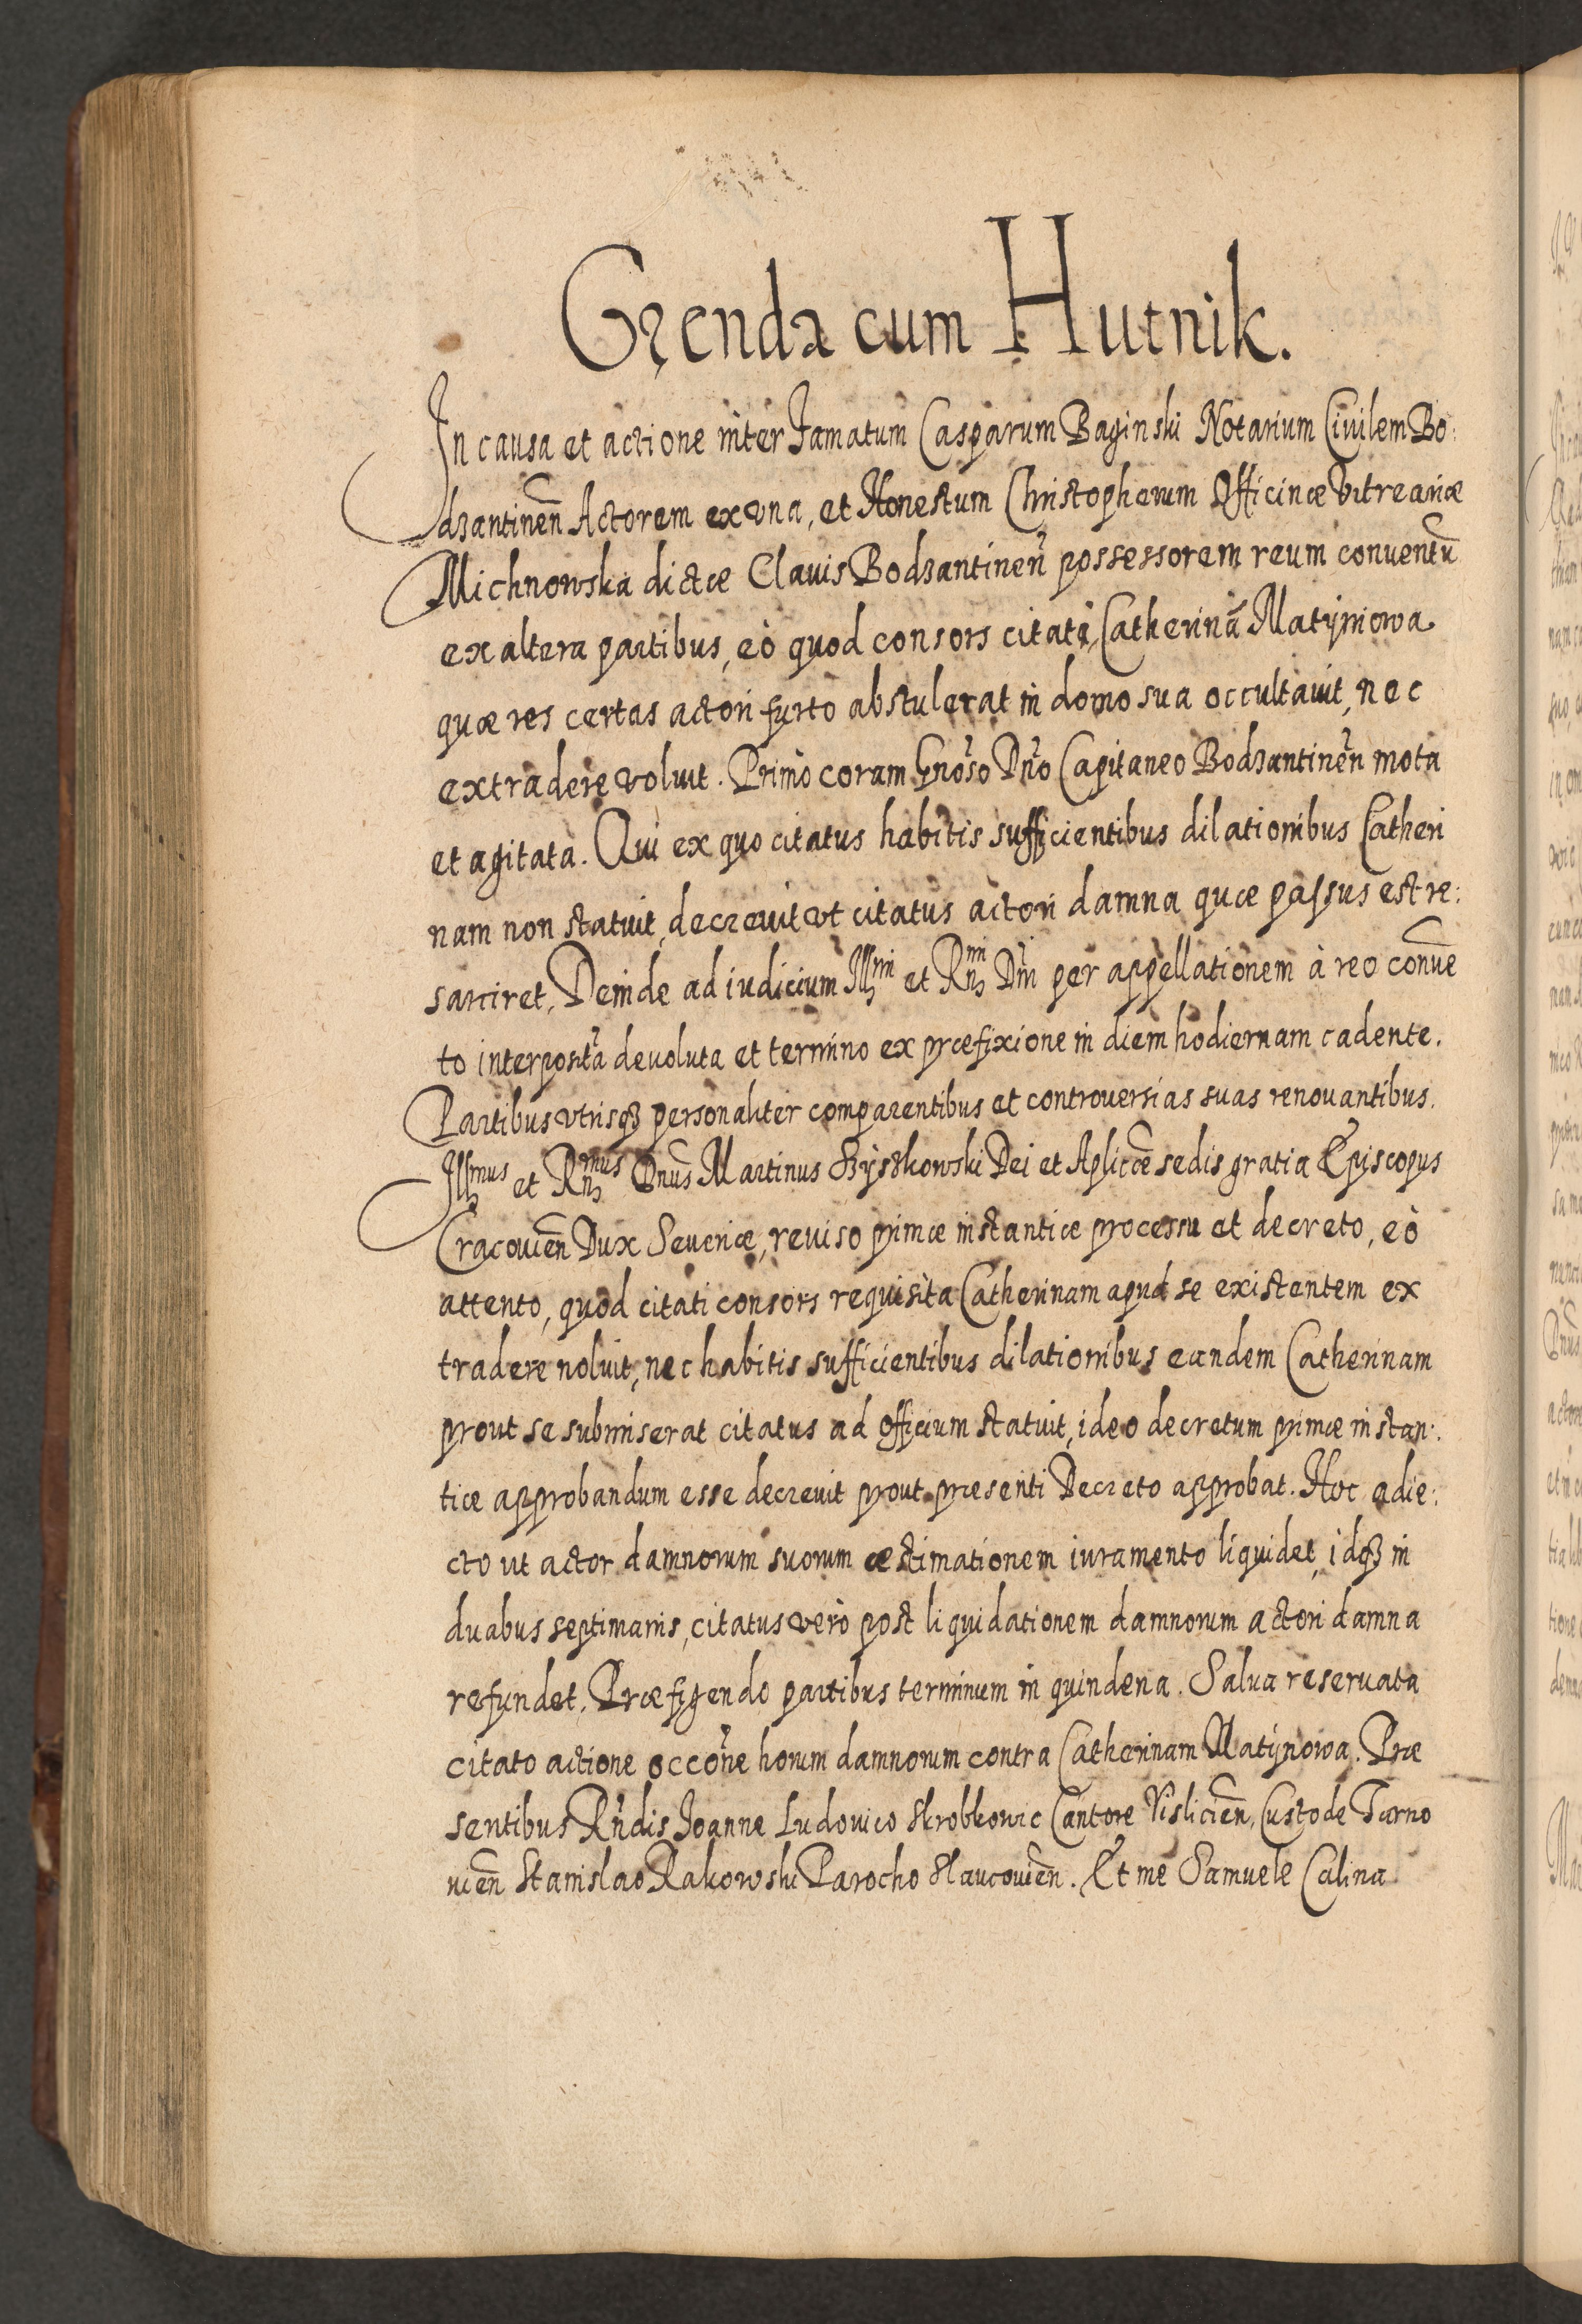 Gręnda cum Hutnik.
In causa et actione inter Famatum Casparum Baginski Notarium Ciuilem Bo:
dzantinen̄ Actorem ex vna, et Honestum Christopherum Officinæ Vitreariæ
Michnowska dictæ Clauis Bodzantinen̄ possessorem reum conuentū
ex altera partibus, eò quod consors citati, Catherinā Matÿniowa
quæ res certas actori furto abstulerat in domo sua occultauit, nec
extradere voluit. Primò coram Gn̄oso Dn̄o Capitaneo Bodzantinen̄ mota
et agitata. Qui ex quo citatus habitis sufficientibus dilationibus Catheri
nam non statuit, decreuit vt citatus actori damna quæ passus est re:
sarciret, Deinde ad iudicium Illmi et Rndmi Dn̄i per appellationem à reo conue
to interposita deuoluta et termino ex præfixione in diem hodiernam cadente.
Partibus vtrisqꝫ personaliter comparentibus et controuersias suas renouantibus.
Illmus et Rndmus Dn̄us Martinus Szÿszkowski Dei et Aplicæ sedis gratia Episcopus
Cracouien̄ Dux Seueriæ, reuiso primæ instantiæ processu et decreto, eò
attento, quod citati consors requisita Catherinam apud se existentem ex
tradere noluit, nec habitis sufficientibus dilationibus eandem Catherinam
prout se submiserat citatus ad officium statuit, ideo decretum primæ instan:
tiæ approbandum esse decreuit prout præsenti Decreto approbat. Hoc adie:
cto ut actor damnorum suorum æstimationem iuramento liquidet, idqꝫ in
duabus septimanis, citatus verò post liquidationem damnorum actori damna
refundet, Præfigendo partibus terminum in quindena. Salua reseruata
citato actione occōne horum damnorum contra Catherinam Matÿnowa. Præ
sentibus Rn̄dis Joanne Ludouico Skrobkowic Cantore Vislicien̄, Custode Tarno
uien̄ Stanislao Rakowski Parocho Slaucouien̄. Et me Samuele Calina